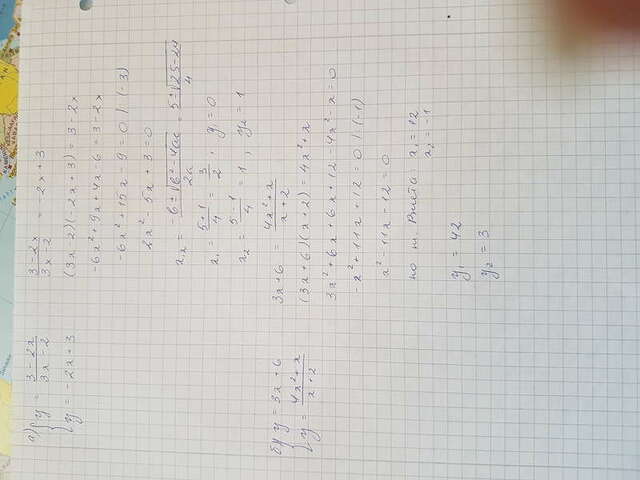 а) { y = (3-2x)/(3x-2)
{ y = -2x+3
(3-2x)/(3x-2) = -2x+3
(3x-2)(-2x+3) = 3-2x
-6x²+9x+4x-6 = 3-2x
-6x²+15x-9 = 0 | (-3)
2x²-5x+3 = 0
x₁,₂ = (-b±√(b²-4ac))/2a = (5±√(25-24))/4
x₁ = (5+1)/4 = 3/2, y₁ = 0
x₂ = (5-1)/4 = 1, y₂ = 1
б) { y = 3x+6
{ y = (4x²+x)/(x+2)
3x+6 = (4x²+x)/(x+2)
(3x+6)(x+2) = 4x²+x
3x²+6x+6x+12-4x²-x = 0
-x²+11x+12 = 0 | (-1)
x²-11x-12 = 0
по т. Виета: x₁ = 12
x₂ = -1
y₁ = 42
y₂ = 3